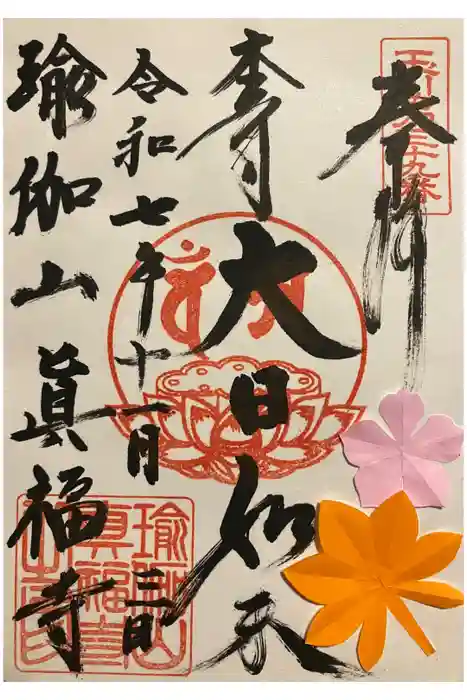 奉拝
三十九番
本尊
大日如来
令和七年十一月三日
瑜伽山
眞福寺
瑜伽山
真福寺